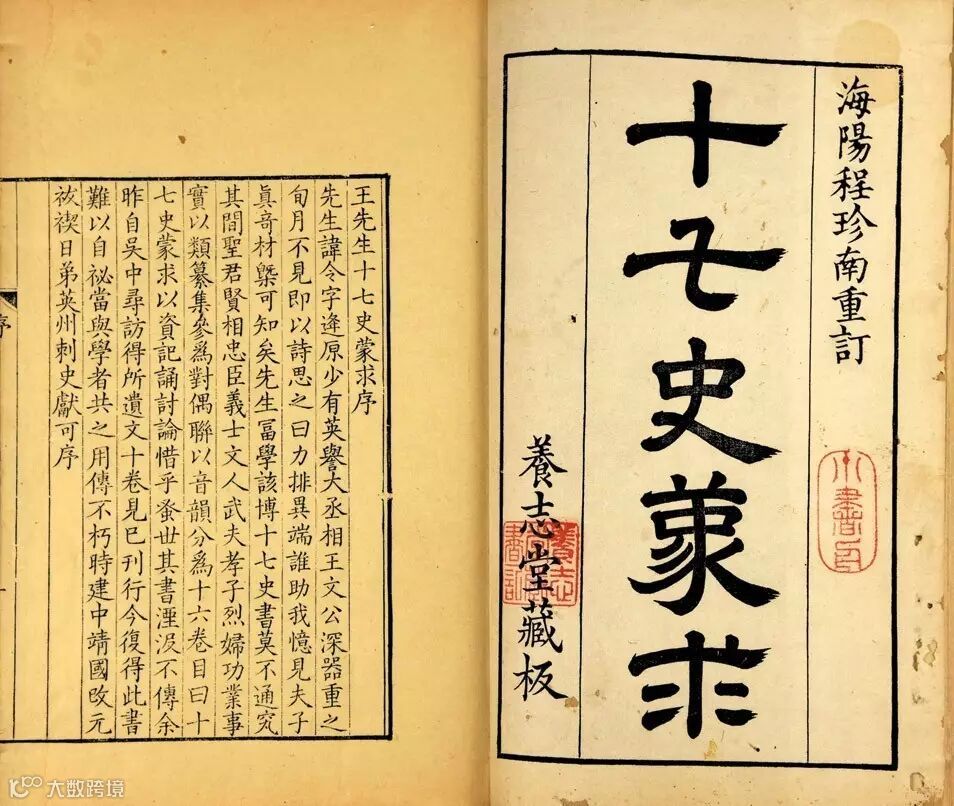 海陽程珍南重訂
十七史蒙求
養志堂藏板
王先生十七史蒙求序
先生諱令字逢原少有英譽大丞相王文公深器重之
旬月不見即以詩思之曰力排異端誰助我憶見夫子
真竒材槩可知矣先生冨學該博十七史書莫不通究
其間聖君賢相忠臣義士文人武夫孝子烈婦功業事
實以類纂集參為對偶聯以音韻分為十六卷目曰十
七史蒙求以資記誦討論惜乎蚤世其書湮没不傳余
昨自吳中尋訪得所遺文十卷見已刊行今復得此書
難以自祕當與學者共之用傳不朽時建中靖國改元
祓禊日弟英州刺史獻可序
序
大数跨境